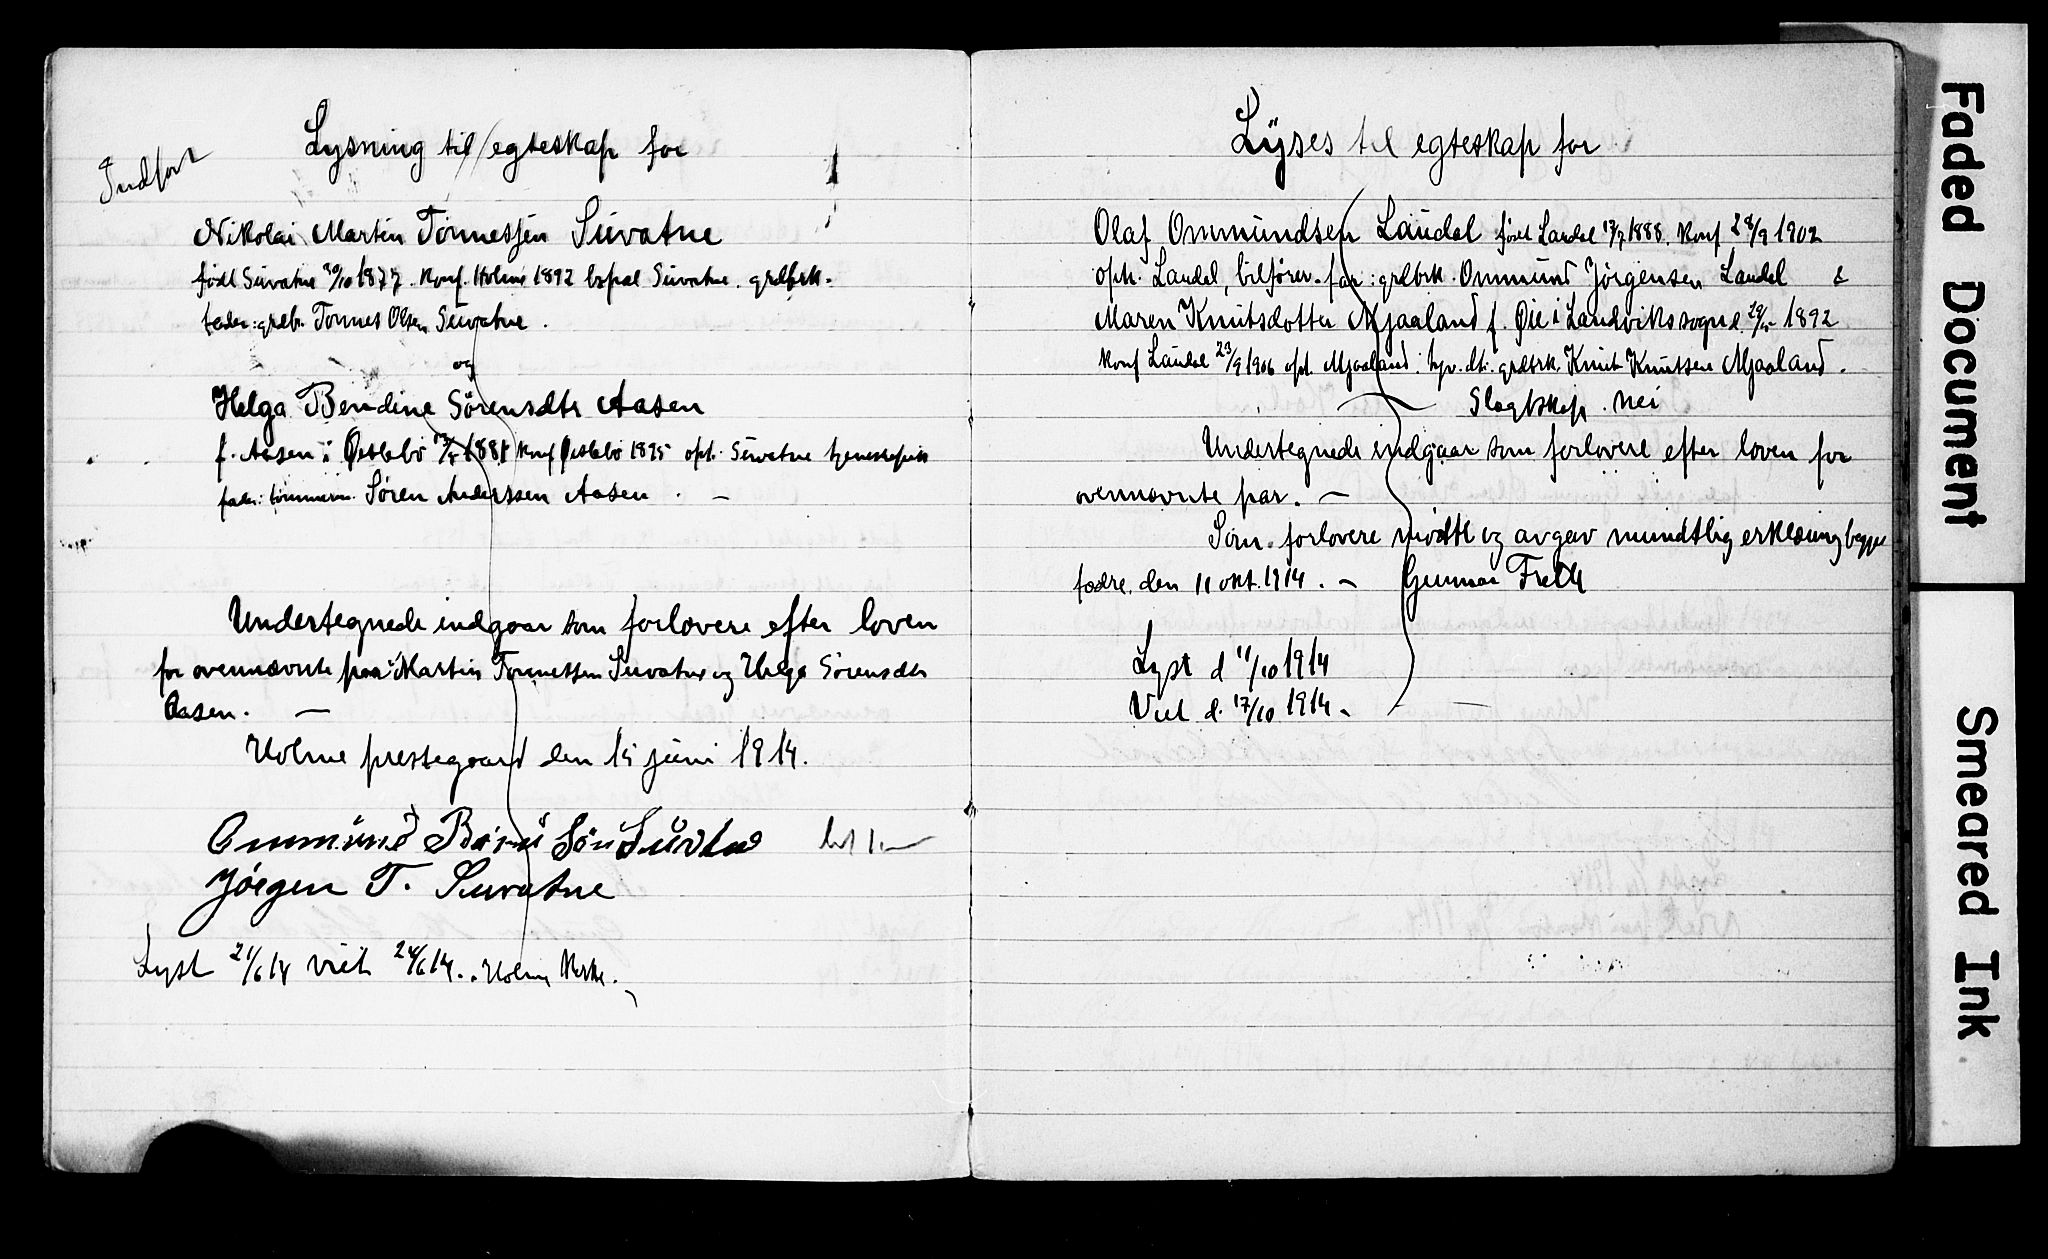 Indført
Lysning til egteskap for
Nikolai Martin Tønnessen Suvatne
født Suvatne 30/10 1877. Konf. Holme 1892 bopæl Suvatne. grdbrk.
fader: grdbr. Tønnes Olsen Suvatne.
og
Helga Bendine Sörensdtr Aasen
f. Aasen i Øislebö 13/5 1881 konf Øislebö 1895 oph. Suvatne tjenestepike
fader: tømmerm. Søren Anderssen Aasen. —
Undertegnede indgaar som forlovere efter loven
for ovennævnte par: Martin Tønnessen Suvatne og Helga Sörensdtr
Aasen. —
Holme prestegaard den 15 juni 1914.
Ommund Suvatne
Jørgen T. Suvatne
Lyst 21/6 14 viet 24/6 14. Holme Kirke.
Lyses til egteskap for
Olaf Ommundsen Laudal født Laudal 13/7 1888. Konf 28/9 1902
oph. Laudal, bilfører. far: grdbrk. Ommund Jørgensen Laudal &
Maren Knutsdotter Mjaaland f. Øie i Landviks sogn d. 29/5 1892
konf Laudal 23/9 1906 oph. Mjaaland: hjv. dtr. grdbrk. Knut Knutsen Mjaaland.
Slagtskap. Nei
Undertegnede indgaar som forlovere efter loven for
ovennævnte par. —
Som forlovere mødte og avgav mundtlig erklæring begges
fædre, den 11 okt. 1914. — Gunnar
Lyst d 11/10 1914
Viet d. 17/10 1914.
Faded Document
Smeared Ink